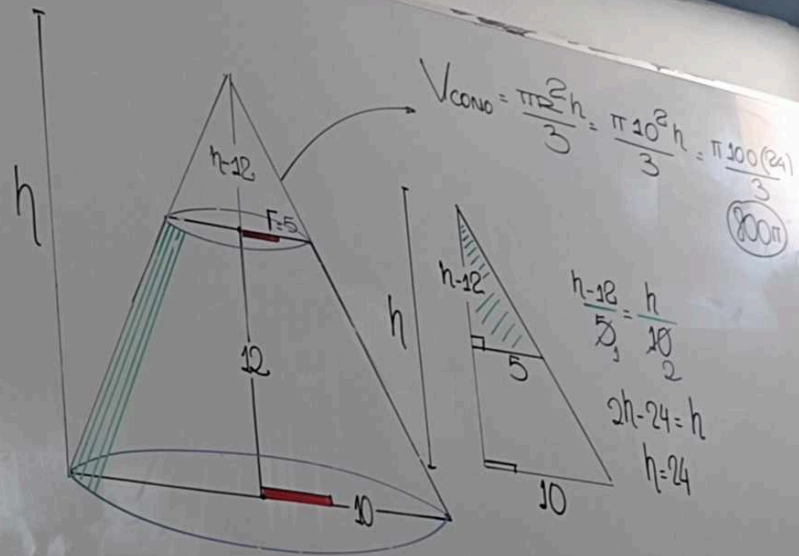 h
h-12
r=5
12
10
Vcono = πR²h/3 = π10²h/3 = π100(24)/3
800π
h
h-12
5
10
h-12/5 = h/10
1 2
2h-24=h
h=24